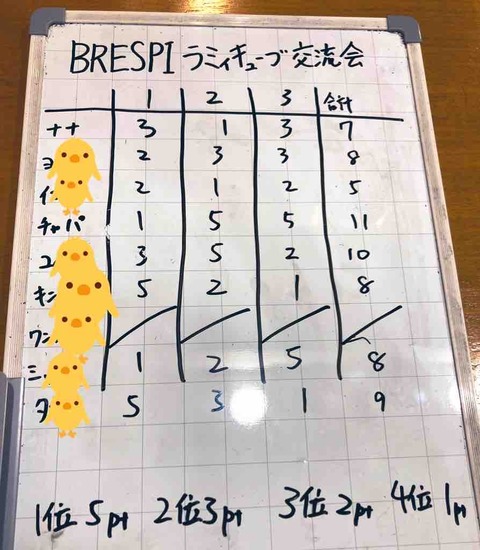 BRESPI ラミィキューブ交流会
1 2 3 合計
ナナ 3 1 3 7
ヨ 2 3 3 8
イ 2 1 2 5
チャパ 1 5 5 11
ユ 3 5 2 10
キン 5 2 1 8
ワン
ミ 1 2 5 8
タ 5 3 1 9
1位 5pt 2位 3pt 3位 2pt 4位 1pt